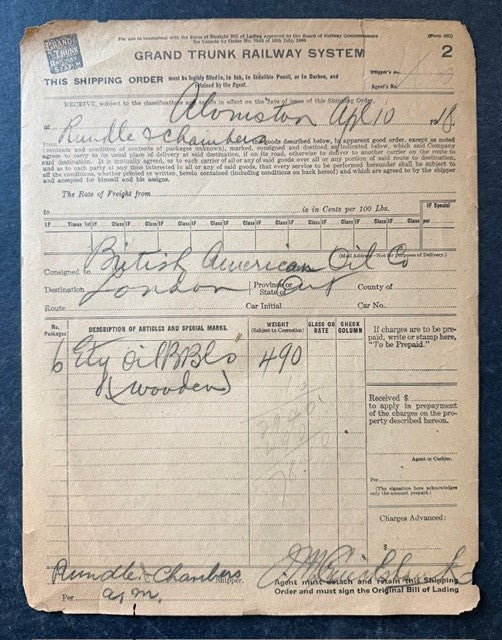 GRAND TRUNK RAILWAY SYSTEM
For use in connection with the Form of Straight Bill of Lading approved by the Board of Railway Commissioners
for Canada by Order No. 7562 of 15th July, 1909
GRAND TRUNK RAILWAY SYSTEM
2
THIS SHIPPING ORDER must be legibly filled in, in Ink, in Indelible Pencil, or in Carbon, and
retained by the Agent.
Shipper's No.
Agent's No.
RECEIVE, subject to the classifications and tariffs in effect on the date of issue of this Shipping Order,
Apl 10 1918
Rundle & Chambers
from goods described below, in apparent good order, except as noted
(contents and condition of contents of packages unknown), marked, consigned and destined as indicated below, which said Company
agrees to carry to its usual place of delivery at said destination, if on its road, otherwise to deliver to another carrier on the route to
said destination. It is mutually agreed, as to each carrier of all or any of said goods over all or any portion of said route to destination,
and as to each party at any time interested in all or any of said goods, that every service to be performed hereunder shall be subject to
all the conditions, whether printed or written, herein contained (including conditions on back hereof) and which are agreed to by the shipper
and accepted for himself and his assigns.
The Rate of Freight from
to is in Cents per 100 Lbs.
IF Special
IF Times 1st IF Class IF Class IF Class IF Class IF Class IF Class IF Class per
(Mail Address—Not for purposes of Delivery.)
Consigned to British American Oil Co
Destination London Province or State of Ont County of
Route Car Initial Car No.
No. Packages DESCRIPTION OF ARTICLES AND SPECIAL MARKS. WEIGHT (Subject to Correction) CLASS OR RATE CHECK COLUMN
6 Ety Oil BBls 490
(wooden)
If charges are to be pre-
paid, write or stamp here,
"To be Prepaid."
Received $
to apply in prepayment
of the charges on the pro-
perty described hereon.
Agent or Cashier.
Per
(The signature here acknowledges
only the amount prepaid.)
Charges Advanced:
$
Rundle & Chambers Shipper.
Per
Agent must detach and retain this Shipping
Order and must sign the Original Bill of Lading